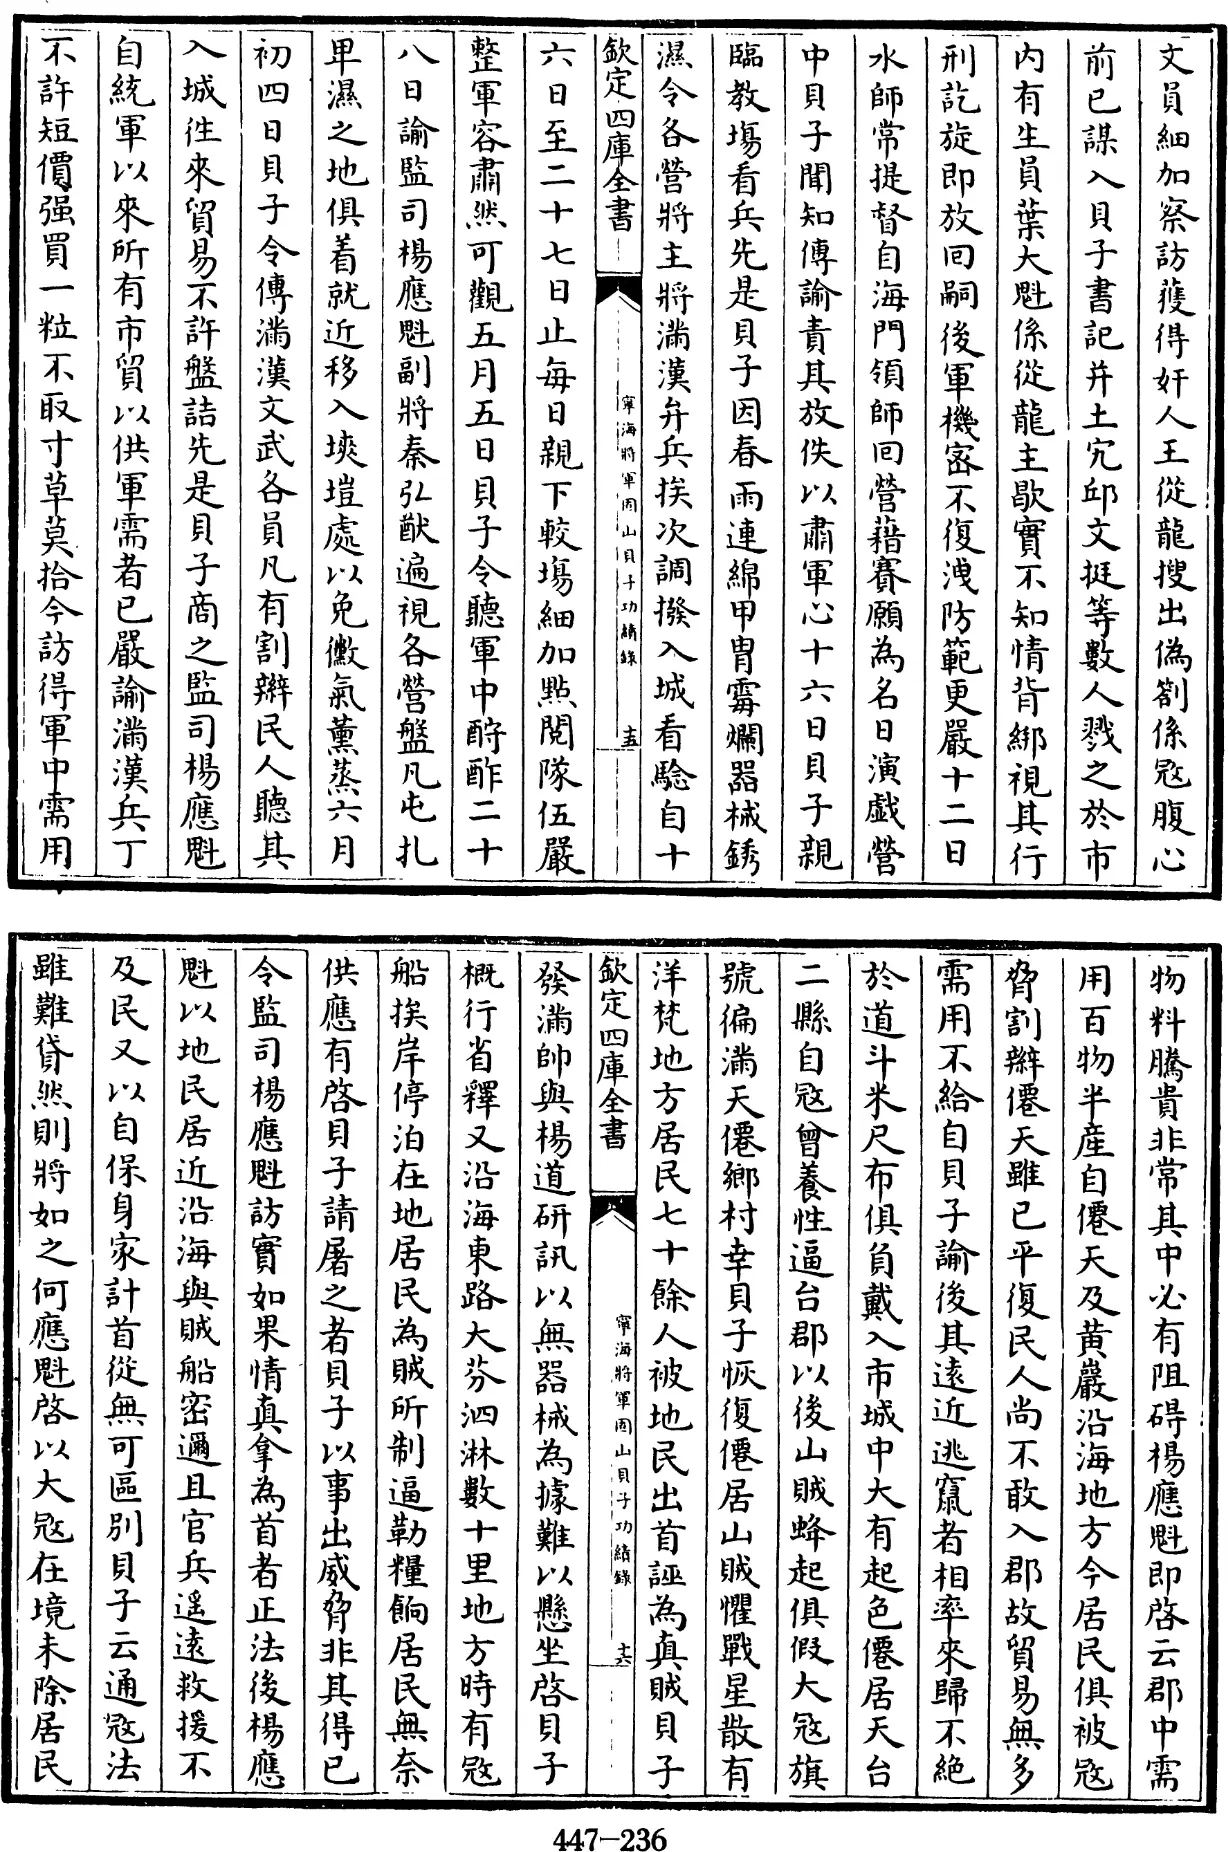 文員細加察訪獲得奸人王從龍搜出偽劄係㓂腹心
前已謀入貝子書記并土宄邱文挺等數人戮之於市
内有生員葉大魁係從龍主歇實不知情背綁視其行
刑訖旋即放回嗣後軍機宻不復洩防範更嚴十二日
水師常提督自海門領師回營藉賽願為名日演戯營
中貝子聞知傳諭責其放佚以肅軍心十六日貝子親
臨教塲看兵先是貝子因春雨連綿甲胄霉爛器械銹
濕令各營將主將滿漢弁兵挨次調撥入城看驗自十
欽定四庫全書
寧海將軍固山貝子功績錄
十五
六日至二十七日止每日親下較塲細加點閲隊伍嚴
整軍容肅然可觀五月五日貝子令聽軍中酹酢二十
八日諭監司楊應魁副將秦弘猷遍視各營盤凡屯扎
卑濕之地俱着就近移入埉塏處以免黴氣薰蒸六月
初四日貝子令傳滿漢文武各員凡有割辮民人聽其
入城往來貿易不許盤詰先是貝子商之監司楊應魁
自統軍以來所有市貿以供軍需者已嚴諭滿漢兵丁
不許短價强買一粒不取寸草莫拾今訪得軍中需用
物料騰貴非常其中必有阻碍楊應魁即啓云郡中需
用百物半産自僊天及黄巖沿海地方今居民俱被㓂
脅割辮僊天雖已平復民人尚不敢入郡故貿易無多
需用不給自貝子諭後其遠近逃竄者相率來歸不絶
於道斗米尺布俱負戴入市城中大有起色僊居天台
二縣自㓂曾養性逼台郡以後山賊蜂起俱假大㓂旗
號徧滿天僊鄉村幸貝子恢復僊居山賊懼戰星散有
洋梵地方居民七十餘人被地民出首誣為真賊貝子
欽定四庫全書
寧海將軍固山貝子功績錄
十六
發滿帥與楊道研訊以無器械為據難以懸坐啓貝子
概行省釋又沿海東路大芬泗淋數十里地方時有㓂
船挨岸停泊在地居民為賊所制逼勒糧餉居民無奈
供應有啓貝子請屠之者貝子以事出威脅非其得已
令監司楊應魁訪實如果情真拿為首者正法後楊應
魁以地民居近沿海與賊船密邇且官兵遥遠救援不
及民又以自保身家計首從無可區别貝子云通㓂法
雖難貸然則將如之何應魁啓以大㓂在境未除居民
447-236